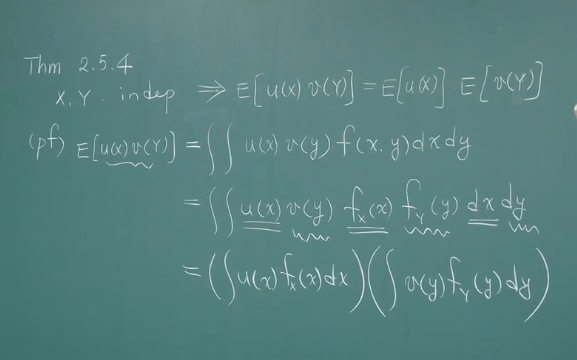 Thm 2.5.4
X, Y : indep ⇒ E[u(X) v(Y)] = E[u(X)] · E[v(Y)]
(pf) E[u(X) v(Y)] = ∫∫ u(x) v(y) f(x, y) dx dy
= ∫∫ u(x) v(y) f_X(x) f_Y(y) dx dy
= (∫ u(x) f_X(x) dx) (∫ v(y) f_Y(y) dy)